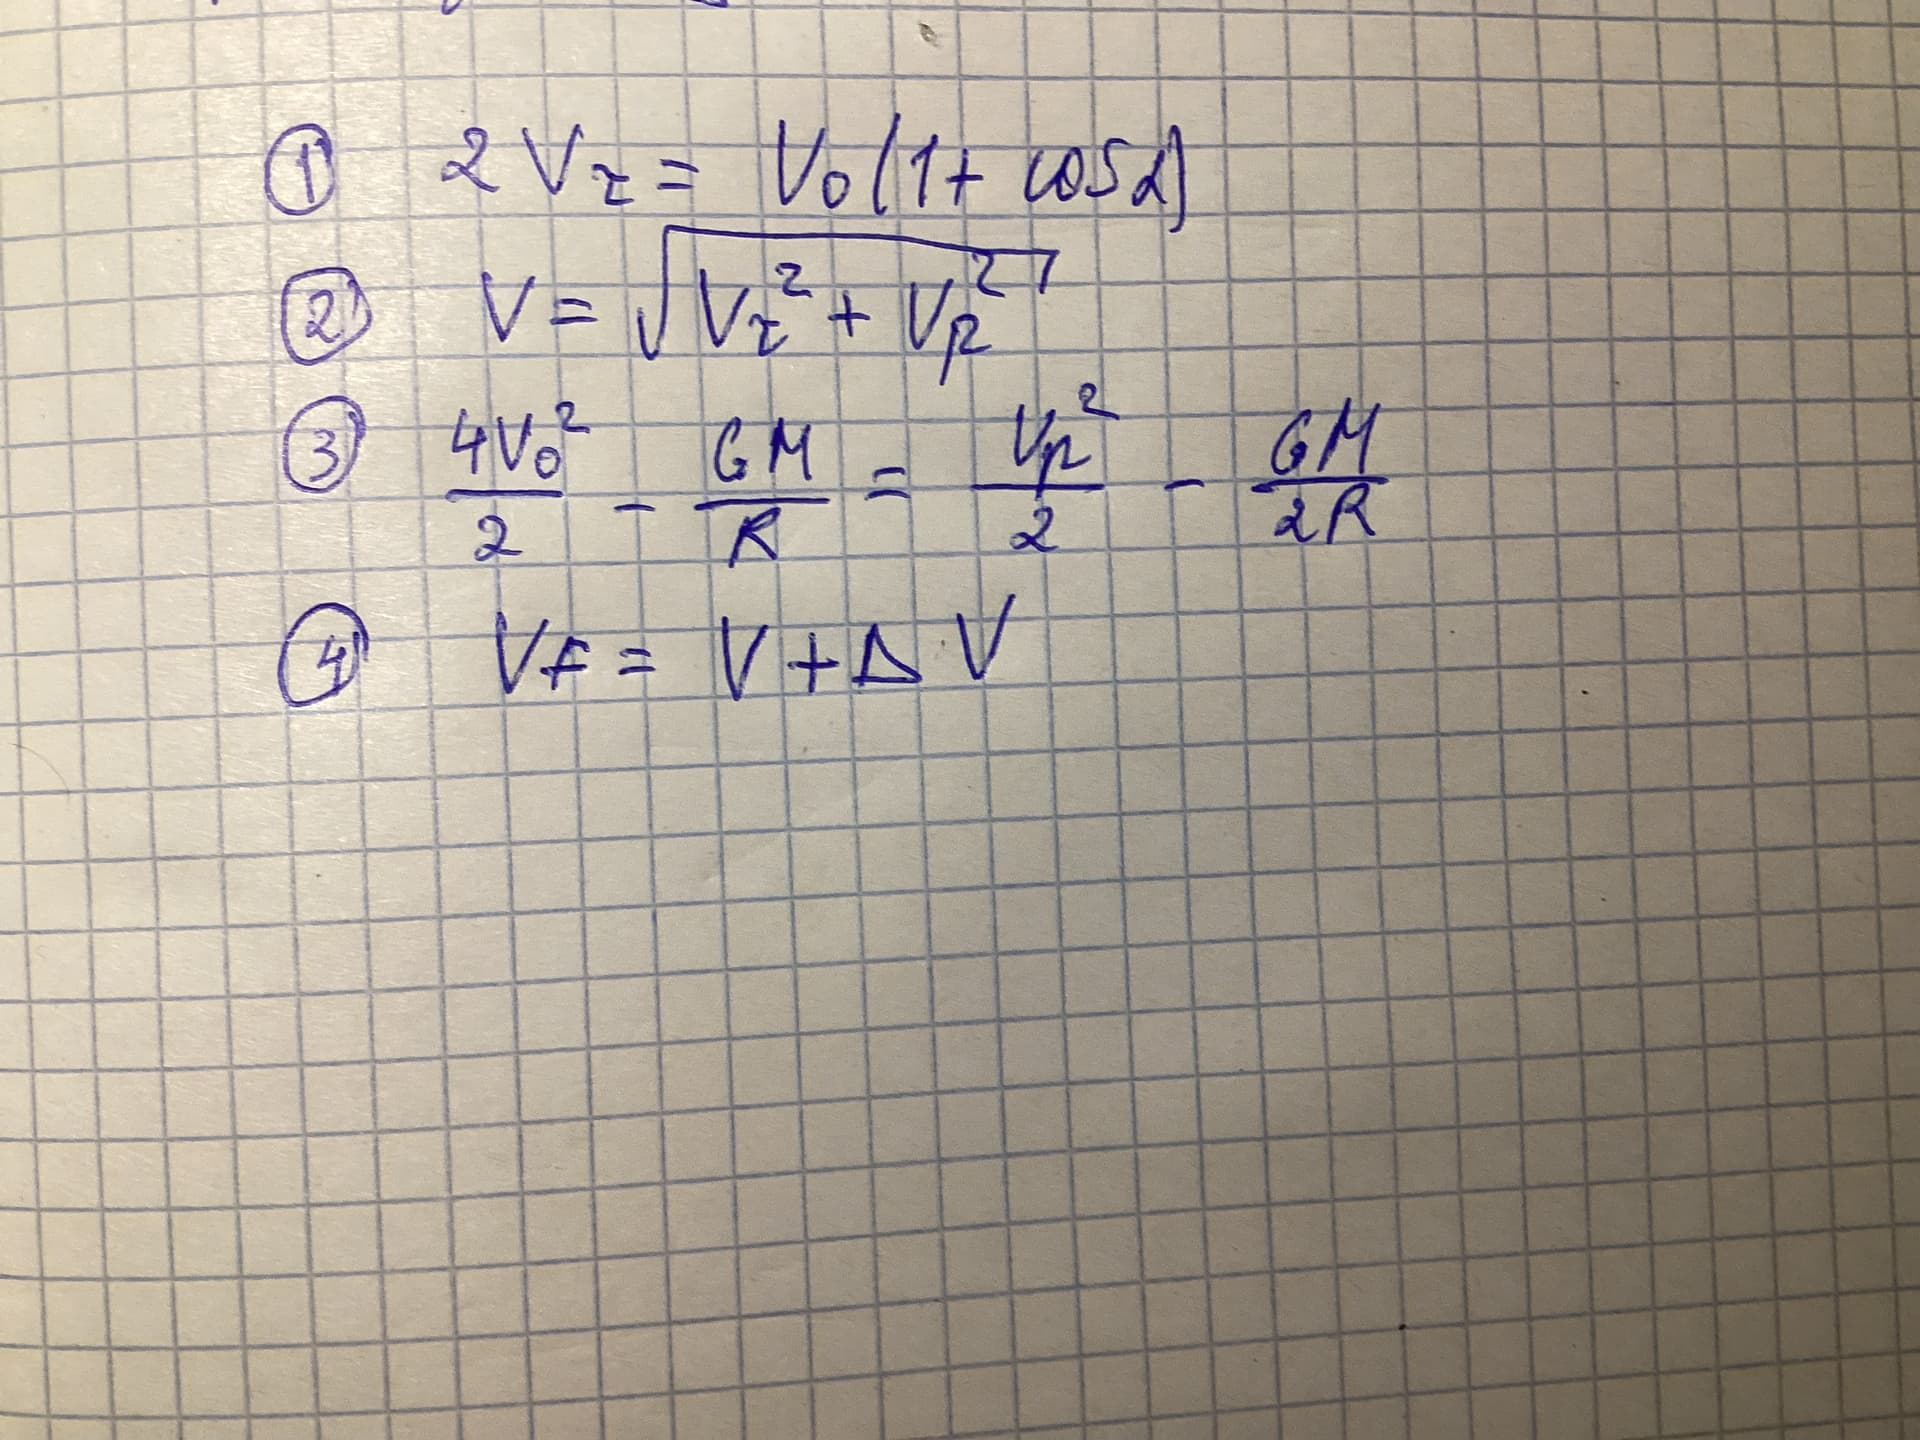 ① 2Vτ = V₀(1 + cosα)
② V = √(Vτ² + Vp²)
③ 4V₀²/2 - GM/R = Vp²/2 - GM/2R
④ Vf = V + ΔV